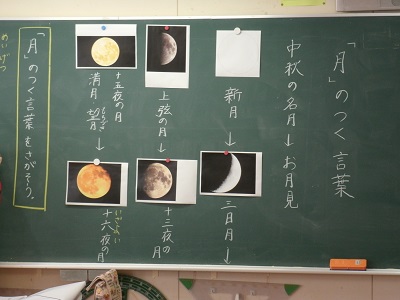 「月」のつく言葉
中秋の名月→お月見
新月→
三日月→
上弦の月→
十三夜の月
十五夜の月
満月 望月→
もちづき
十六夜の月
いざよい
「月」のつく言葉をさがそう。
めいげつ